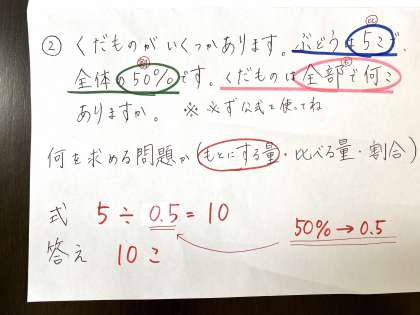 ② くだものがいくつかあります。ぶどうは5こで、
全体の50%です。くだものは全部で何こ
ありますか。 ※必ず公式を使ってね
何を求める問題か(もとにする量・比べる量・割合)
式 5÷0.5=10
50%→0.5
答え 10こ